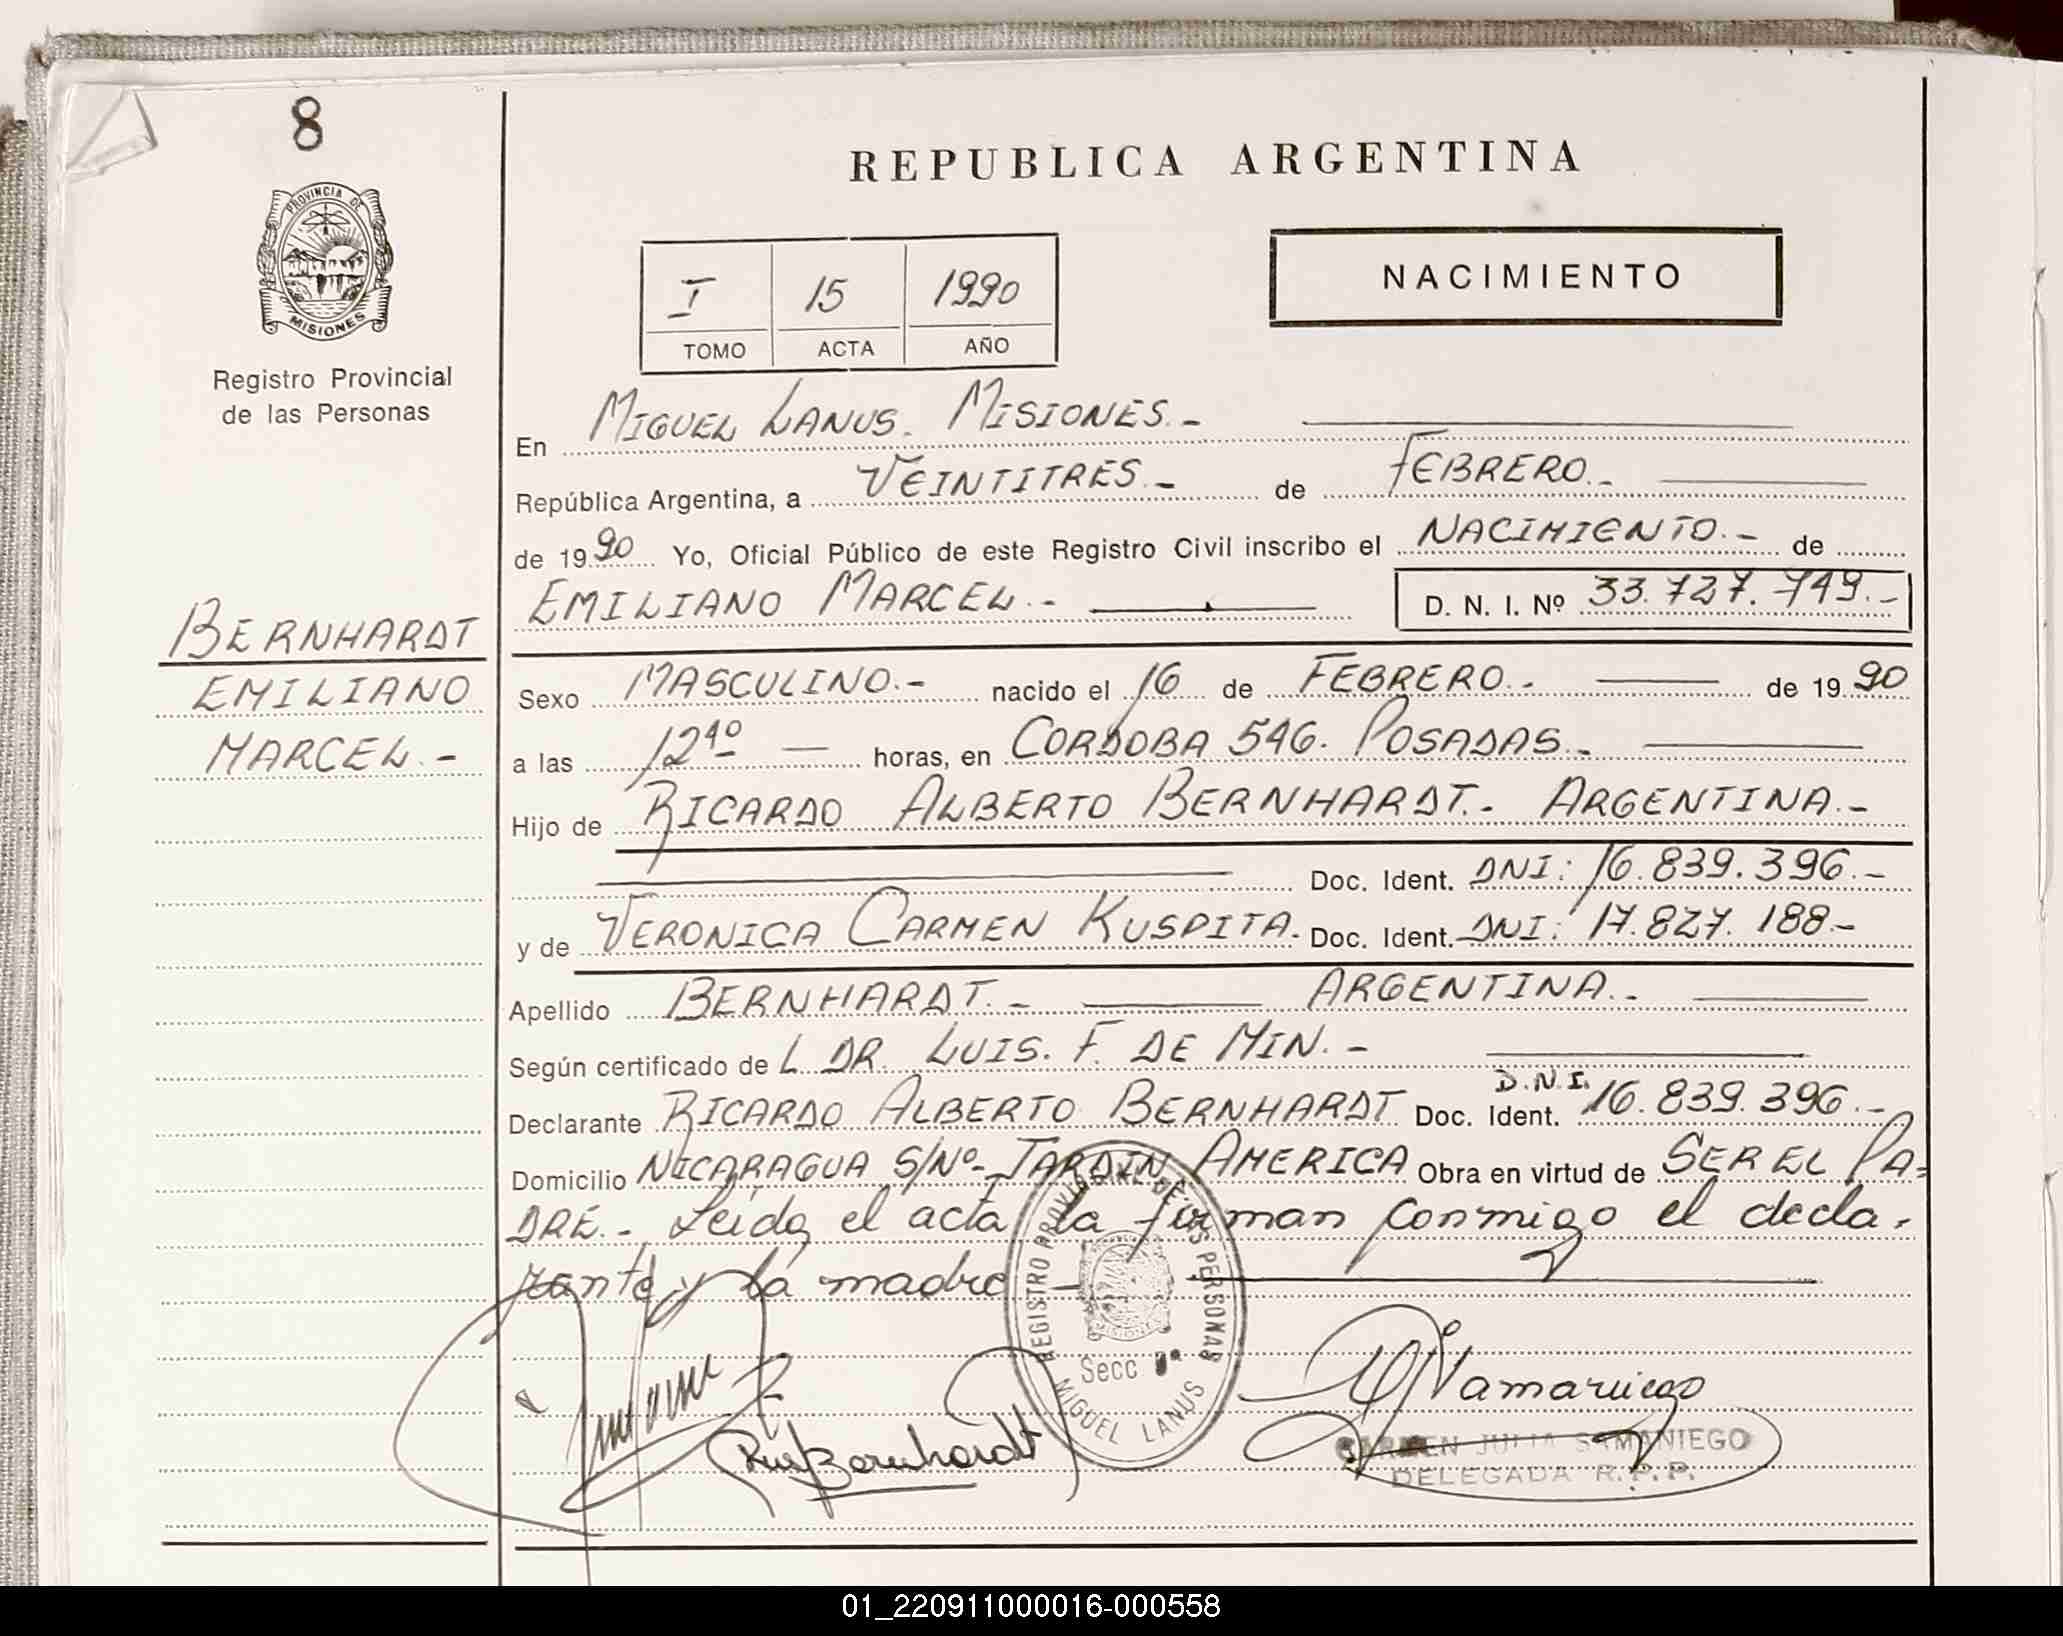 8
PROVINCIA DE
MISIONES
Registro Provincial
de las Personas
REPUBLICA ARGENTINA
NACIMIENTO
I 15 1990
TOMO ACTA AÑO
En MIGUEL LANUS. MISIONES.-
República Argentina, a VEINTITRES.- de FEBRERO.-
de 1990 Yo, Oficial Público de este Registro Civil inscribo el NACIMIENTO.- de
EMILIANO MARCEL.- D. N. I. Nº 33.727.749.-
BERNHARDT
EMILIANO
MARCEL.-
Sexo MASCULINO.- nacido el 16 de FEBRERO.- de 1990
a las 12 40 horas, en CORDOBA 546. POSADAS.-
Hijo de RICARDO ALBERTO BERNHARDT.- ARGENTINA.-
Doc. Ident. DNI: 16.839.396.-
y de VERONICA CARMEN KUSPITA. Doc. Ident. DNI: 17.827.188.-
Apellido BERNHARDT.- ARGENTINA.-
Según certificado de L DR. LUIS. F. DE MIN.-
Declarante RICARDO ALBERTO BERNHARDT Doc. Ident. D.N.I. 16.839.396.-
Domicilio NICARAGUA S/Nº- JARDIN AMERICA Obra en virtud de SER EL PA=
DRE.- Leída el acta la firman conmigo el decla-
rante y la madre
REGISTRO PROVINCIAL DE LAS PERSONAS
MISIONES
Secc
MIGUEL LANUS
Bernhardt
Samaniego
CARMEN JULIA SAMANIEGO
DELEGADA R.P.P.
01_220911000016-000558